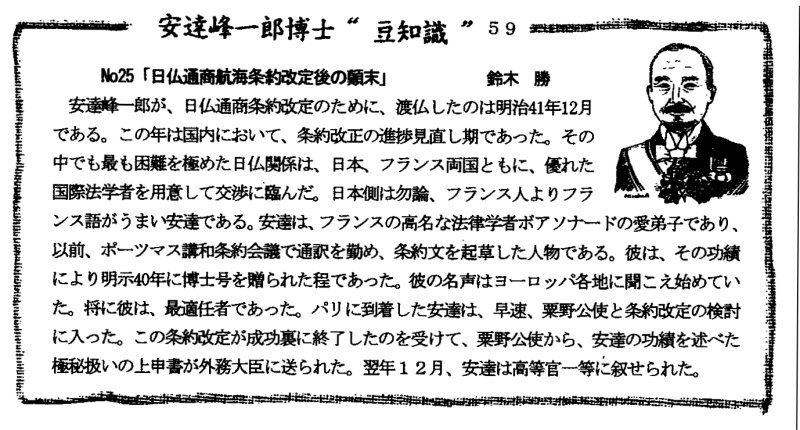 安達峰一郎博士“豆知識”59
No25「日仏通商航海条約改定後の顛末」 鈴木 勝
安達峰一郎が、日仏通商条約改定のために、渡仏したのは明治41年12月
である。この年は国内において、条約改正の進捗見直し期であった。その
中でも最も困難を極めた日仏関係は、日本、フランス両国ともに、優れた
国際法学者を用意して交渉に臨んだ。日本側は勿論、フランス人よりフラ
ンス語がうまい安達である。安達は、フランスの高名な法律学者ボアソナードの愛弟子であり、
以前、ポーツマス講和条約会議で通訳を勤め、条約文を起草した人物である。彼は、その功績
により明示40年に博士号を贈られた程であった。彼の名声はヨーロッパ各地に聞こえ始めてい
た。将に彼は、最適任者であった。パリに到着した安達は、早速、粟野公使と条約改定の検討
に入った。この条約改定が成功裏に終了したのを受けて、粟野公使から、安達の功績を述べた
極秘扱いの上申書が外務大臣に送られた。翌年12月、安達は高等官一等に叙せられた。